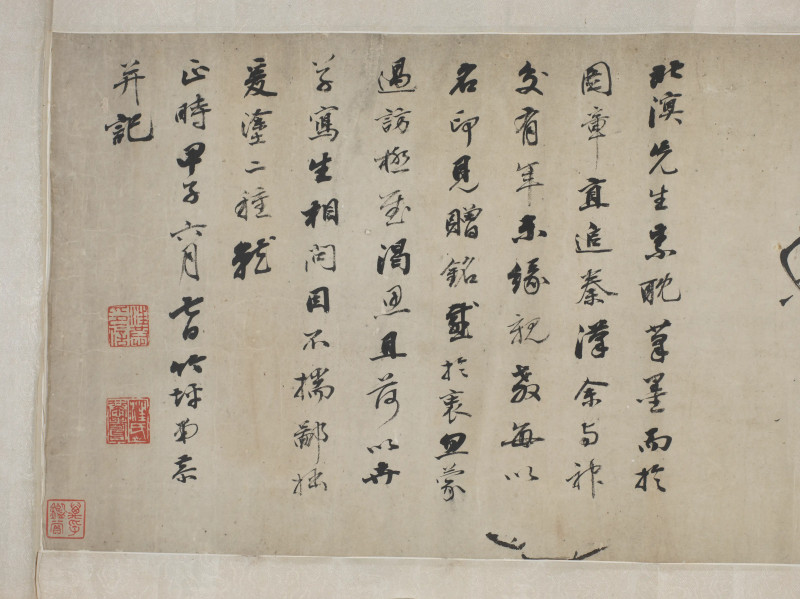 北溟先生素耽筆墨而於
圖章直追秦漢余与神
交有年未緣親教每以
名印見贈銘感於衷忽蒙
過訪極慰渴思且荷以卉
草寫生相問因不揣鄙拙
爰塗二種
正時甲子六月七日竹坪
并記